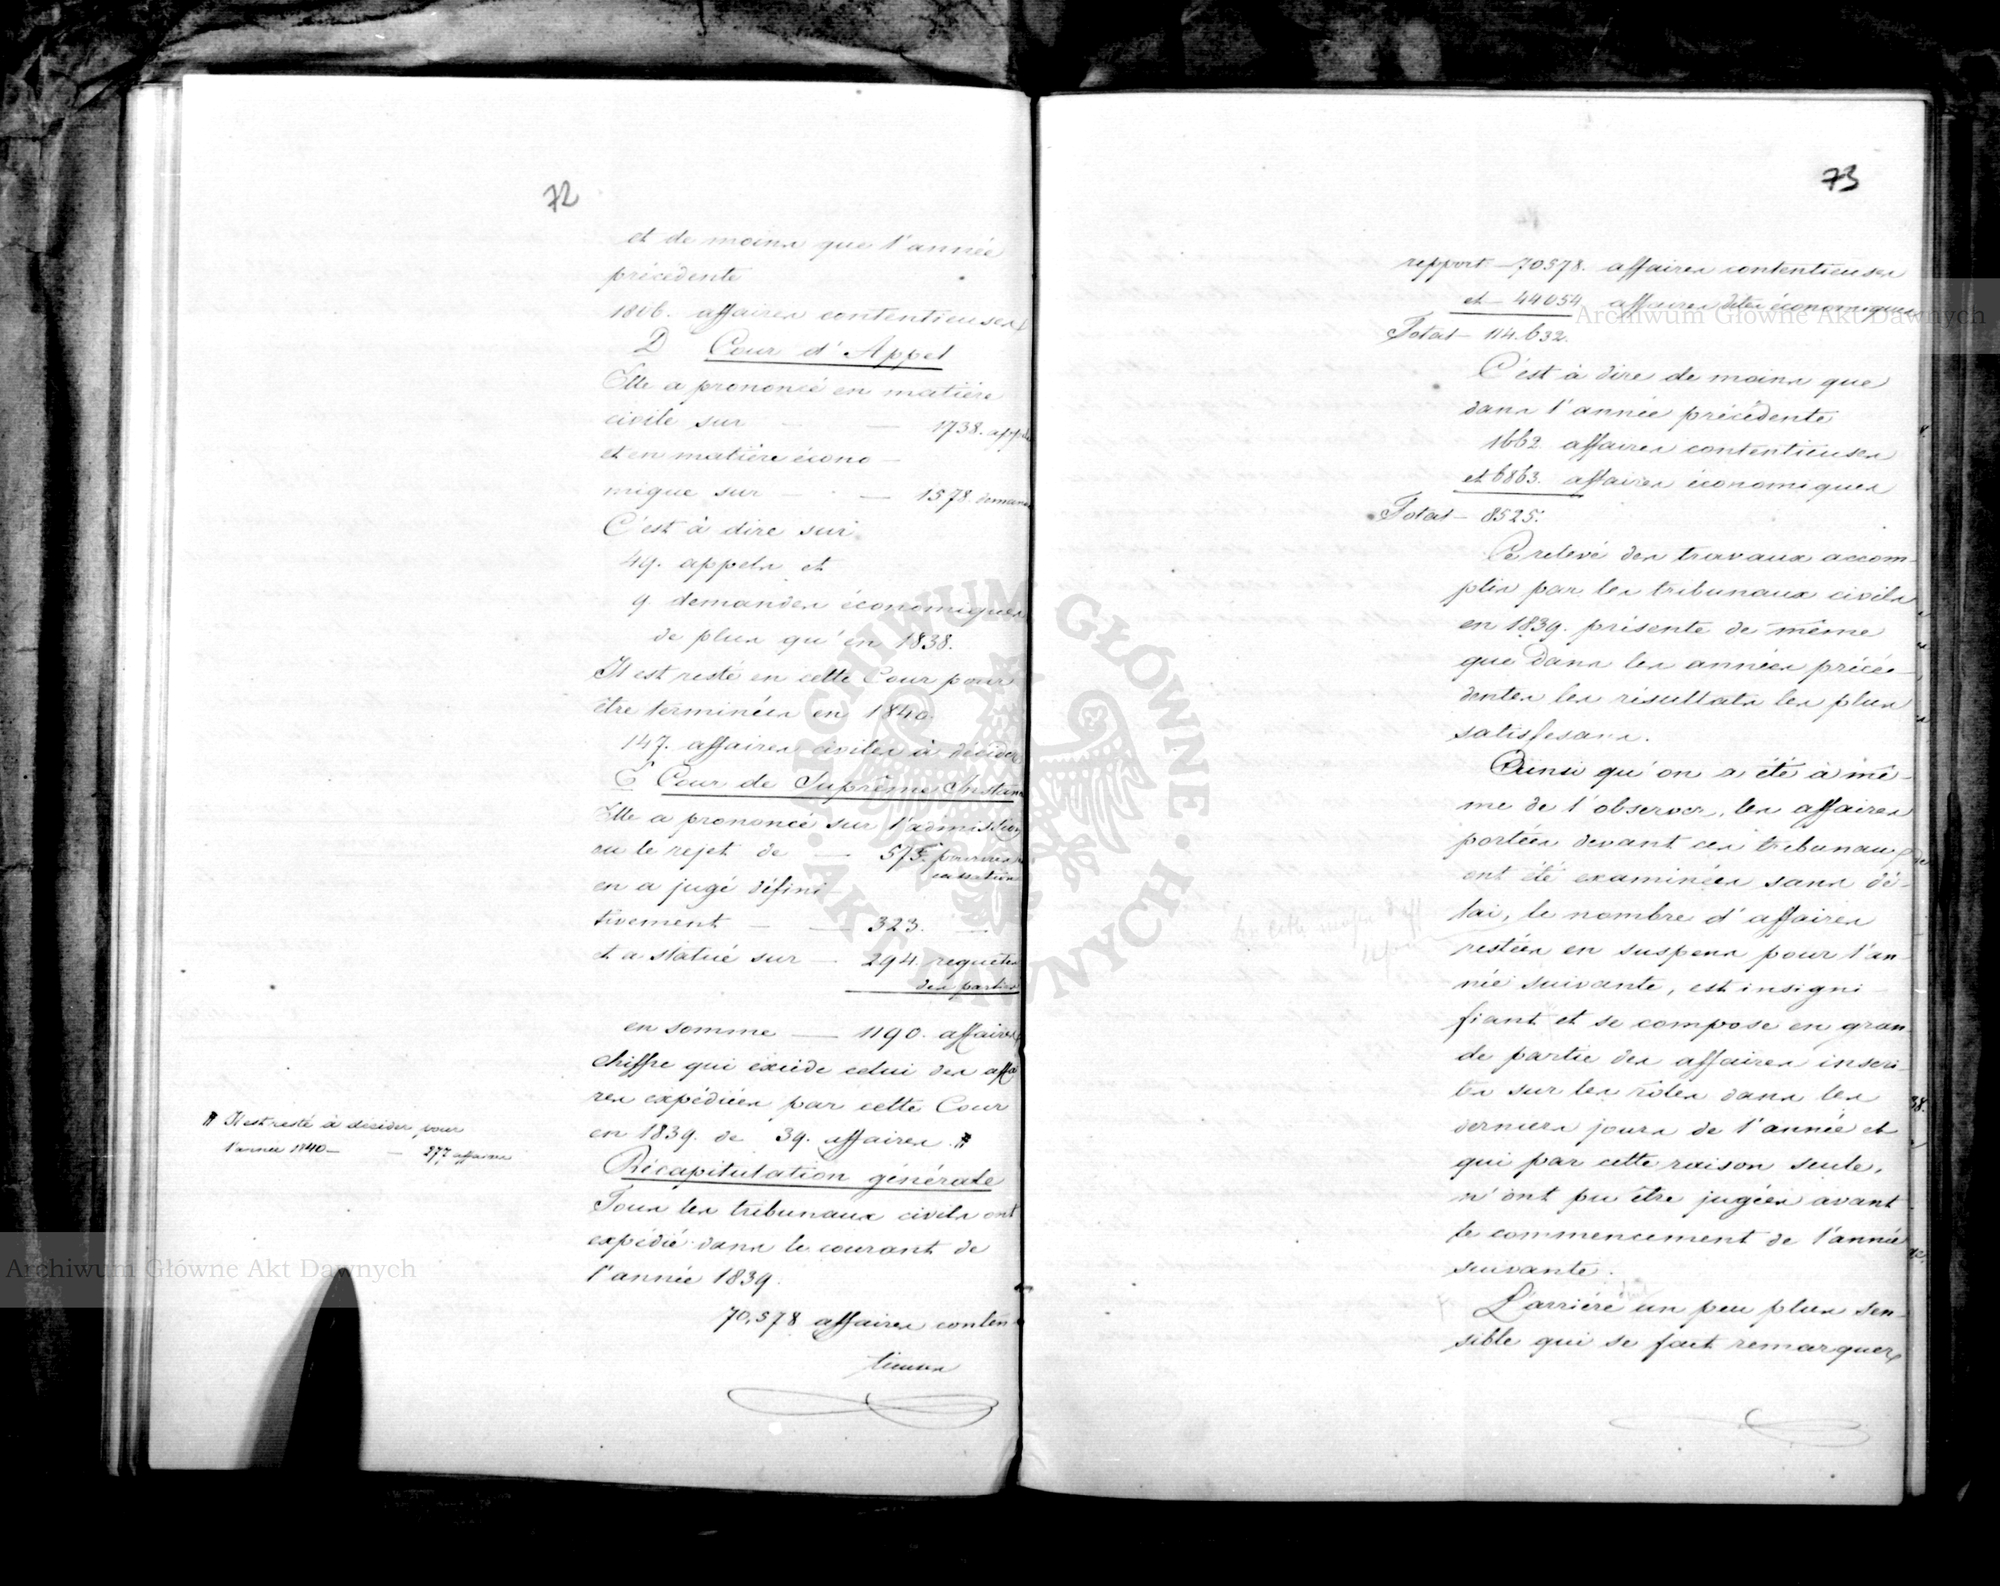 72
et de moins que l'année
précédente
1806. affaires contentieuses
D Cour d'Appel
Elle a prononcé en matière
civile sur — — 1738. appels
et en matière écono —
mique sur — — 1578. deman
C'est à dire sur
49. appels et
9 demandes économiques
de plus qu'en 1838.
Il est resté en cette Cour pour
être terminées en 1840.
147. affaires civiles à décider
E Cour de Suprême Instan
Elle a prononcé sur l'admission
ou le rejet de — 573. pourvois
cassation
en a jugé défini —
tivement — — 323. —
et a statué sur — 294. requêtes
des parties
en somme — 1190. affaires
chiffre qui excède celui des affai
res expédiées par cette Cour
en 1839. de 39. affaires. #
# Il est resté à décider pour
l'année 1840 — — 277 affaires
Récapitulation générale
Tous les tribunaux civils ont
expédié dans le courant de
l'année 1839.
70,578 affaires conten
tieuses
73
repport — 70578. affaires contentieuses
et — 44054 affaires dites économiques
Total — 114.632.
C'est à dire de moins que
dans l'année précédente
1662. affaires contentieuses
et 6863. affaires économiques
Total — 8525.
Ce relevé des travaux accom-
plis par les tribunaux civils
en 1839. présente de même
que dans les années précé-
dentes les résultats les plus
satisfesans.
Ainsi qu'on a été à mê-
me de l'observer, les affaires
portées devant ces tribunaux
ont été examinées sans dé-
lai, le nombre d'affaires
restées en suspens pour l'an-
née suivante, est insigni-
fiant et se compose en gran-
de partie des affaires inscri-
tes sur les rôles dans les
derniers jours de l'année et
qui par cette raison seule,
n'ont pu être jugées avant
le commencement de l'année
suivante.
L'arriéré un peu plus sen-
sible qui se fait remarquer
Archiwum Główne Akt Dawnych
Archiwum Główne Akt Dawnych
ARCHIWUM GŁÓWNE · AKT DAWNYCH ·